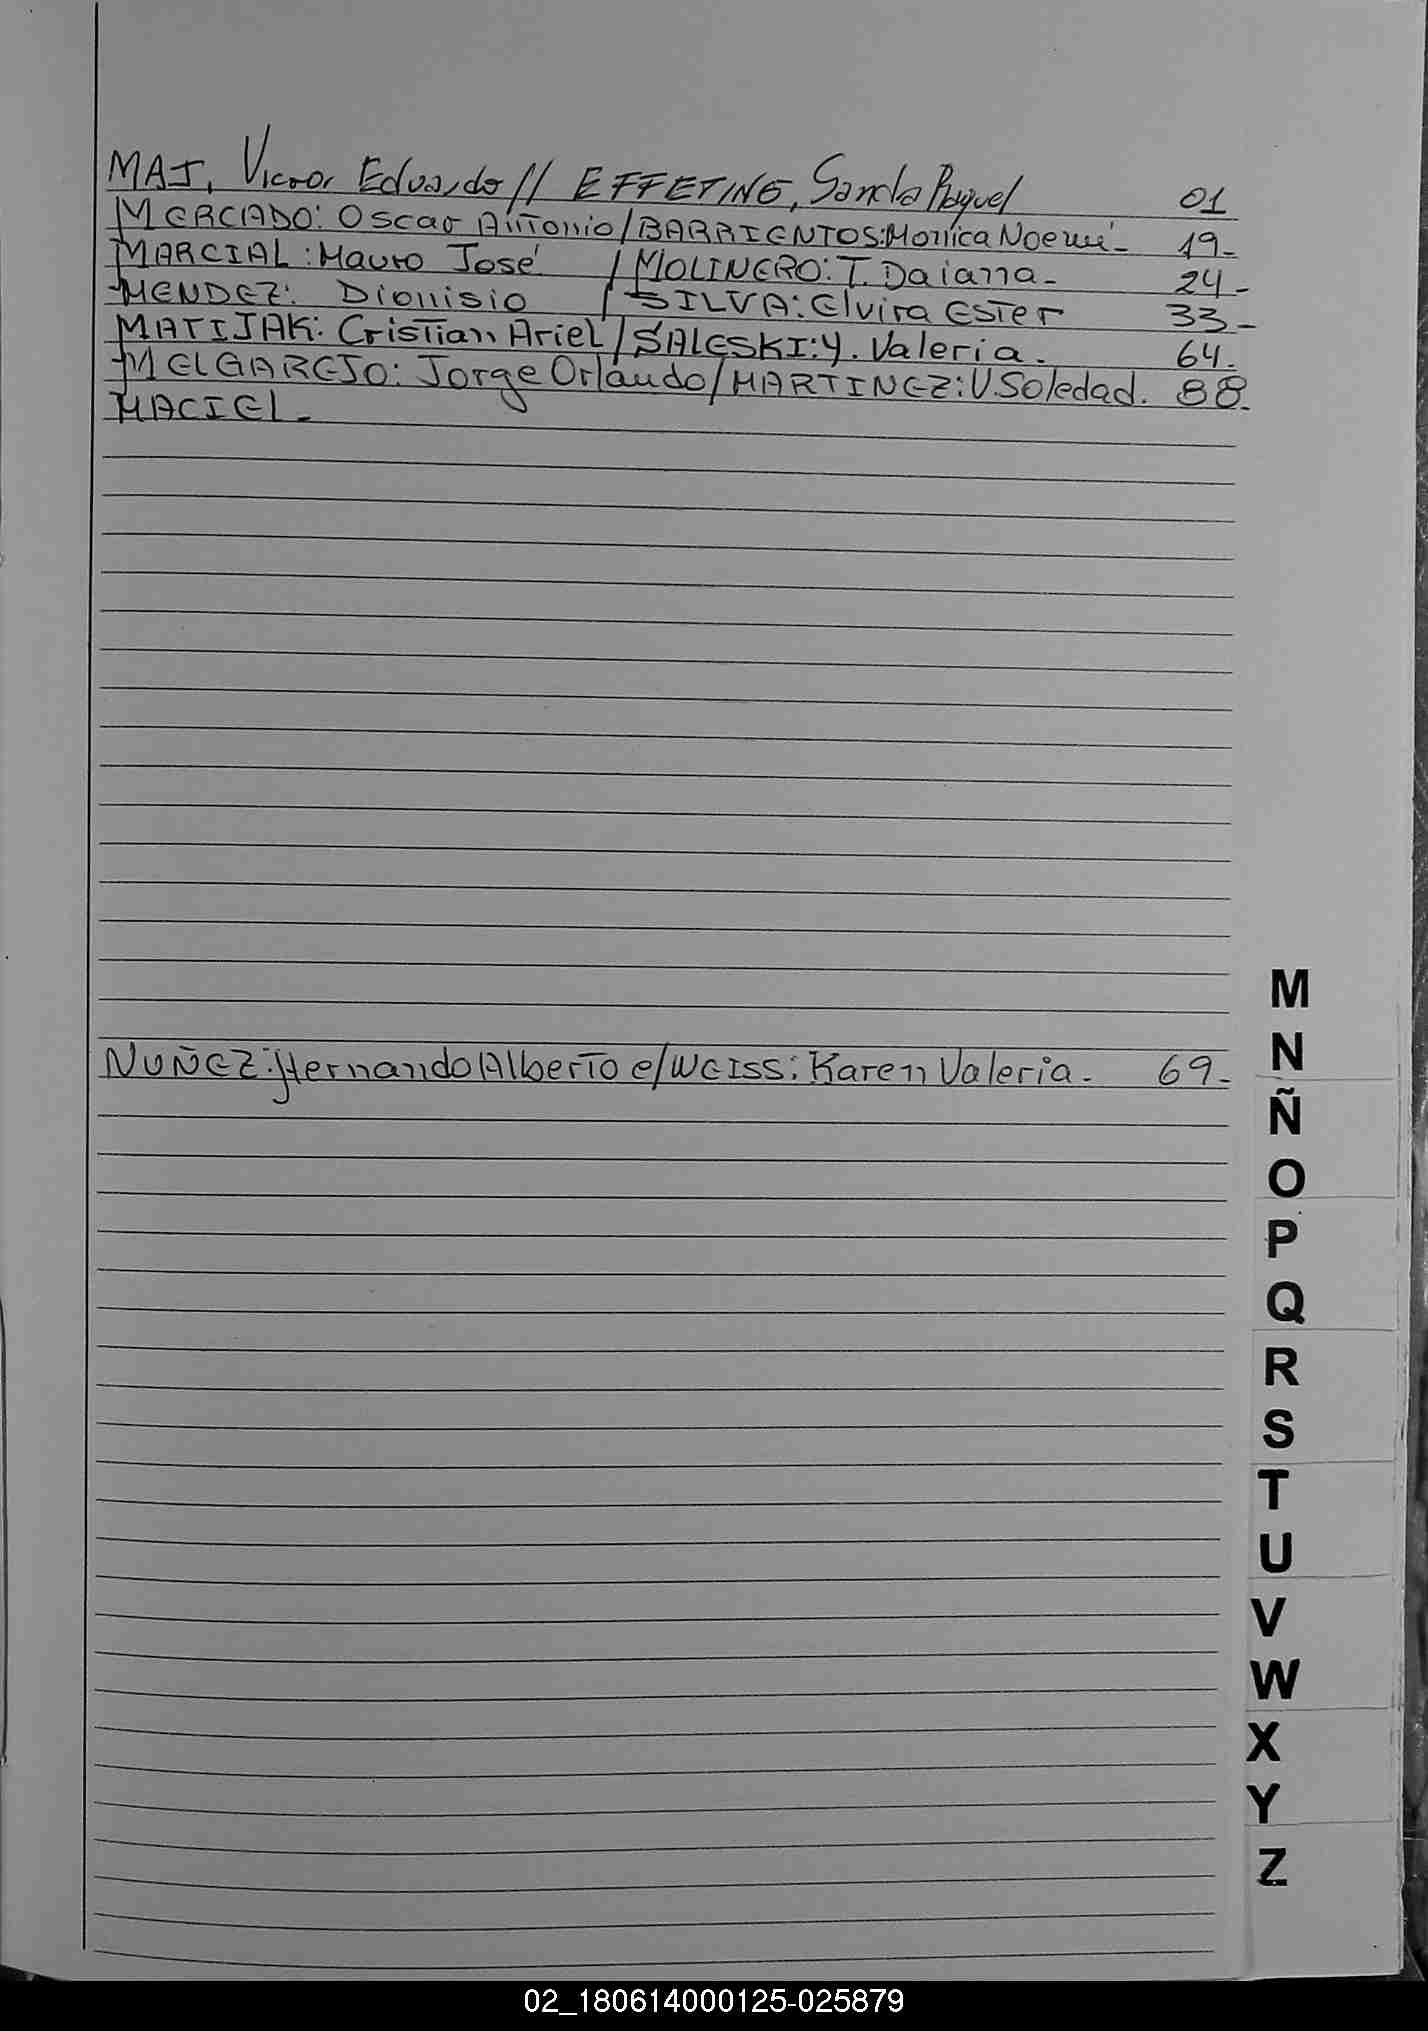 MAJ, Victor Eduardo // EFFETING, Sandra Raquel 01
MERCADO: Oscar Antonio / BARRIENTOS: Monica Noemí - 19-
MARCIAL: Mauro José / MOLINERO: T. Daiana - 24-
MENDEZ: Dionisio / SILVA: Elvira Ester 33-
MATIJAK: Cristian Ariel / SALESKI: Y. Valeria. 64-
MELGAREJO: Jorge Orlando / MARTINEZ: V. Soledad. 88-
MACIEL-
NUÑEZ: Hernando Alberto e/ WEISS: Karen Valeria. 69-
M
N
Ñ
O
P
Q
R
S
T
U
V
W
X
Y
Z
02_180614000125-025879